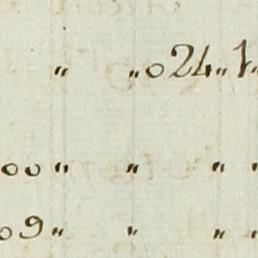 " " 024 " 1 "
00 " " " "
09 " " " "